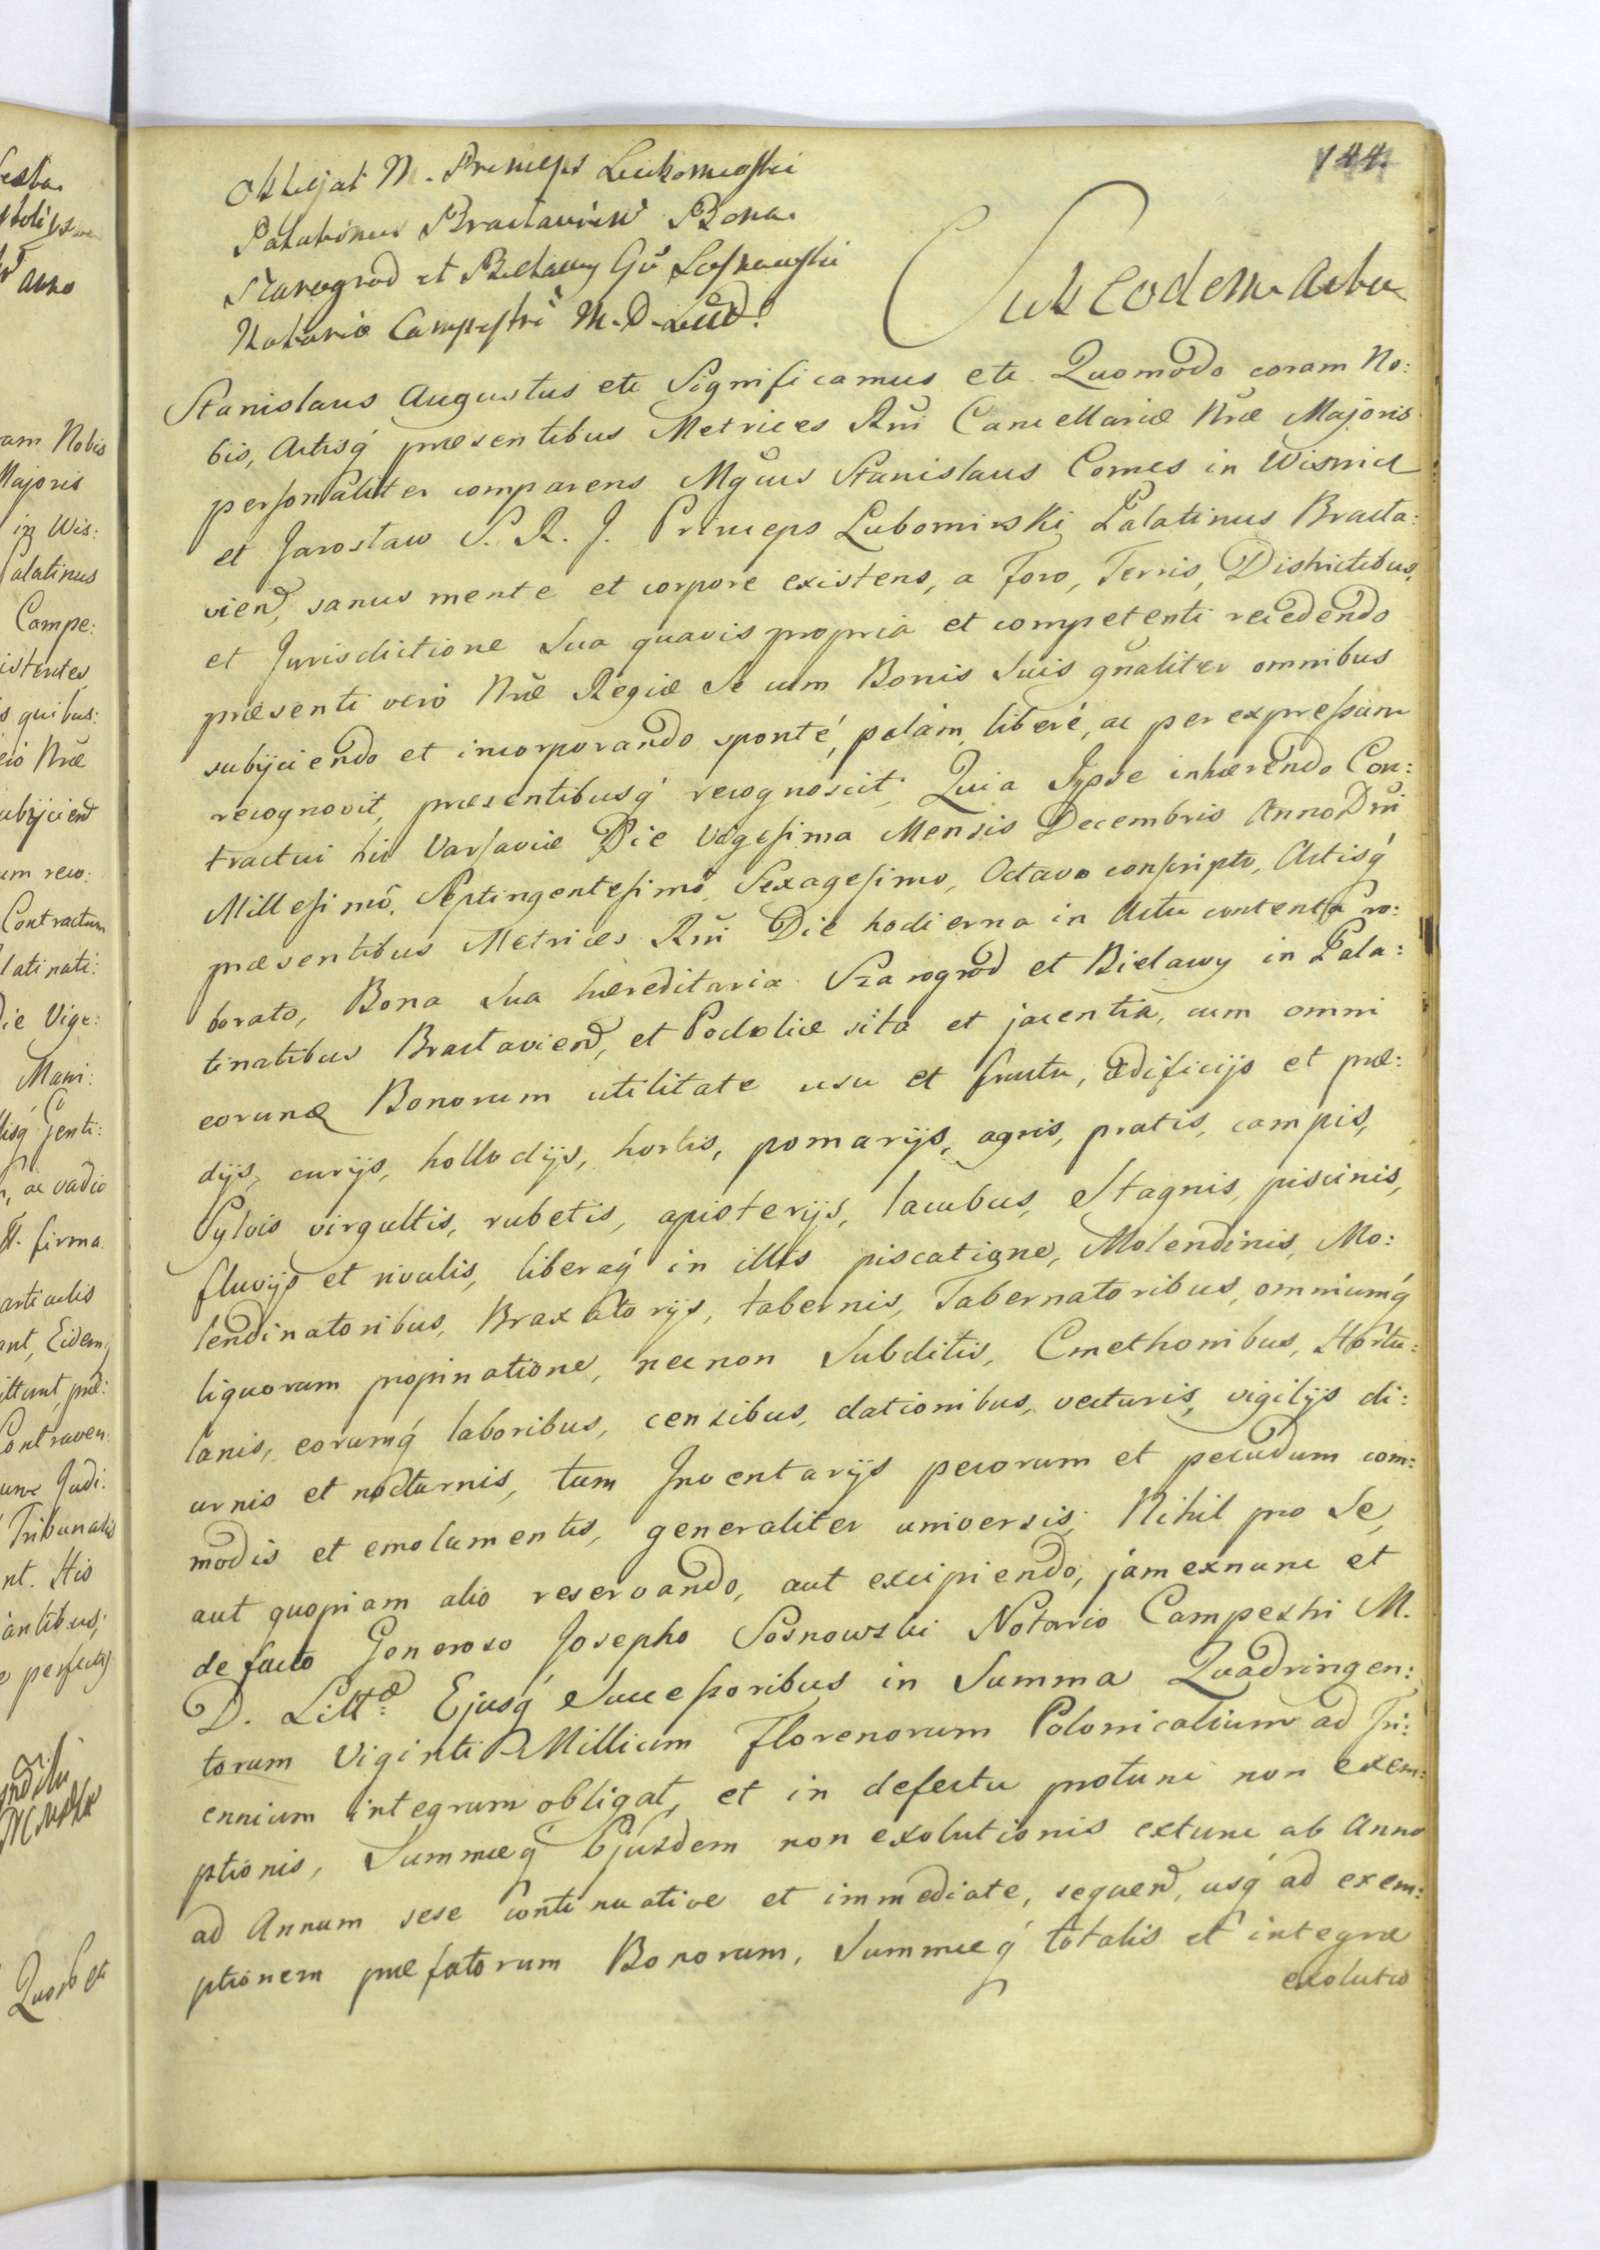 144.
Obligat M. Princeps Lubomirski
Palatinus Braclavien Bona
Szarogrod et Bielawy Gō Sosnowski
Notario Campestri M. D. Litt.
Sub eodem Actu
Stanislaus Augustus etc Significamus etc. Quomodo coram No:
bis, Actisq́ præsentibus Metrices Rñi Cancellariæ Nræ Majoris
personaliter comparens Mgcus Stanislaus Comes in Wisnicz
et Jaroslaw S. R. J. Princeps Lubomirski Palatinus Bracla:
vien, sanus mente et corpore existens, a Foro, Terris, Districtibus,
et Jurisdictione Sua quavis propria et competenti recedendo
præsenti vero Nræ Regiæ Se cum Bonis Suis gñaliter omnibus
subijciendo et incorporando sponté, palám, liberé, ac per expressum
recognovit, præsentibusq́ recognoscit; Quia Ipse inhærendo Con:
tractui hic Varsaviæ Die Vigesima Mensis Decembris Anno Dñi
Millesimô, Septingentesimô, Sexagesimo, Octavo conscripto, Actisq́
præsentibus Metrices Rñi Die hodierna in Actu contenta ro:
borato, Bona Sua hæreditaria Szarogrod et Bielawy in Pala:
tinatibus Braclavien, et Podoliæ sita et jacentia, cum omni
eorund Bonorum utilitate usu et fructu, ædificijs et præ:
dijs, curijs, hollodijs, hortis, pomarijs, agris, pratis, campis,
Sylvis virgultis, rubetis, apisterijs, lacubus, Stagnis, piscinis,
fluvijs et rivulis, liberaq́ in illis piscatione, Molendinis, Mo:
lendinatoribus, Braxatorijs, tabernis, Tabernatoribus, omniumq́
liquorum propinatione, necnon Subditis, Cmethonibus, Hortu:
lanis, eorumq́ laboribus, censibus, dationibus, vecturis, vigilijs di:
urnis et nocturnis, tum Inventarijs pecorum et pecudum com:
modis et emolumentis, generaliter universis; Nihil pro Se,
aut quopiam alio reservando, aut excipiendo, jam exnunc et
de facto Generoso Josepho Sosnowski Notario Campestri M.
D. Litt. Ejusq́ Successoribus in Summa Quadringen:
torum Viginti Millium Florenorum Polonicalium ad Tri:
ennium integrum obligat, et in defectu protunc non exem:
ptionis, Summæq́ Ejusdem non exolutionis extunc ab Anno
ad Annum sese continuative et immediate, sequen, usq́ ad exem:
ptionem præfatorum Bonorum, Summæq́ totalis et integræ
exolutio